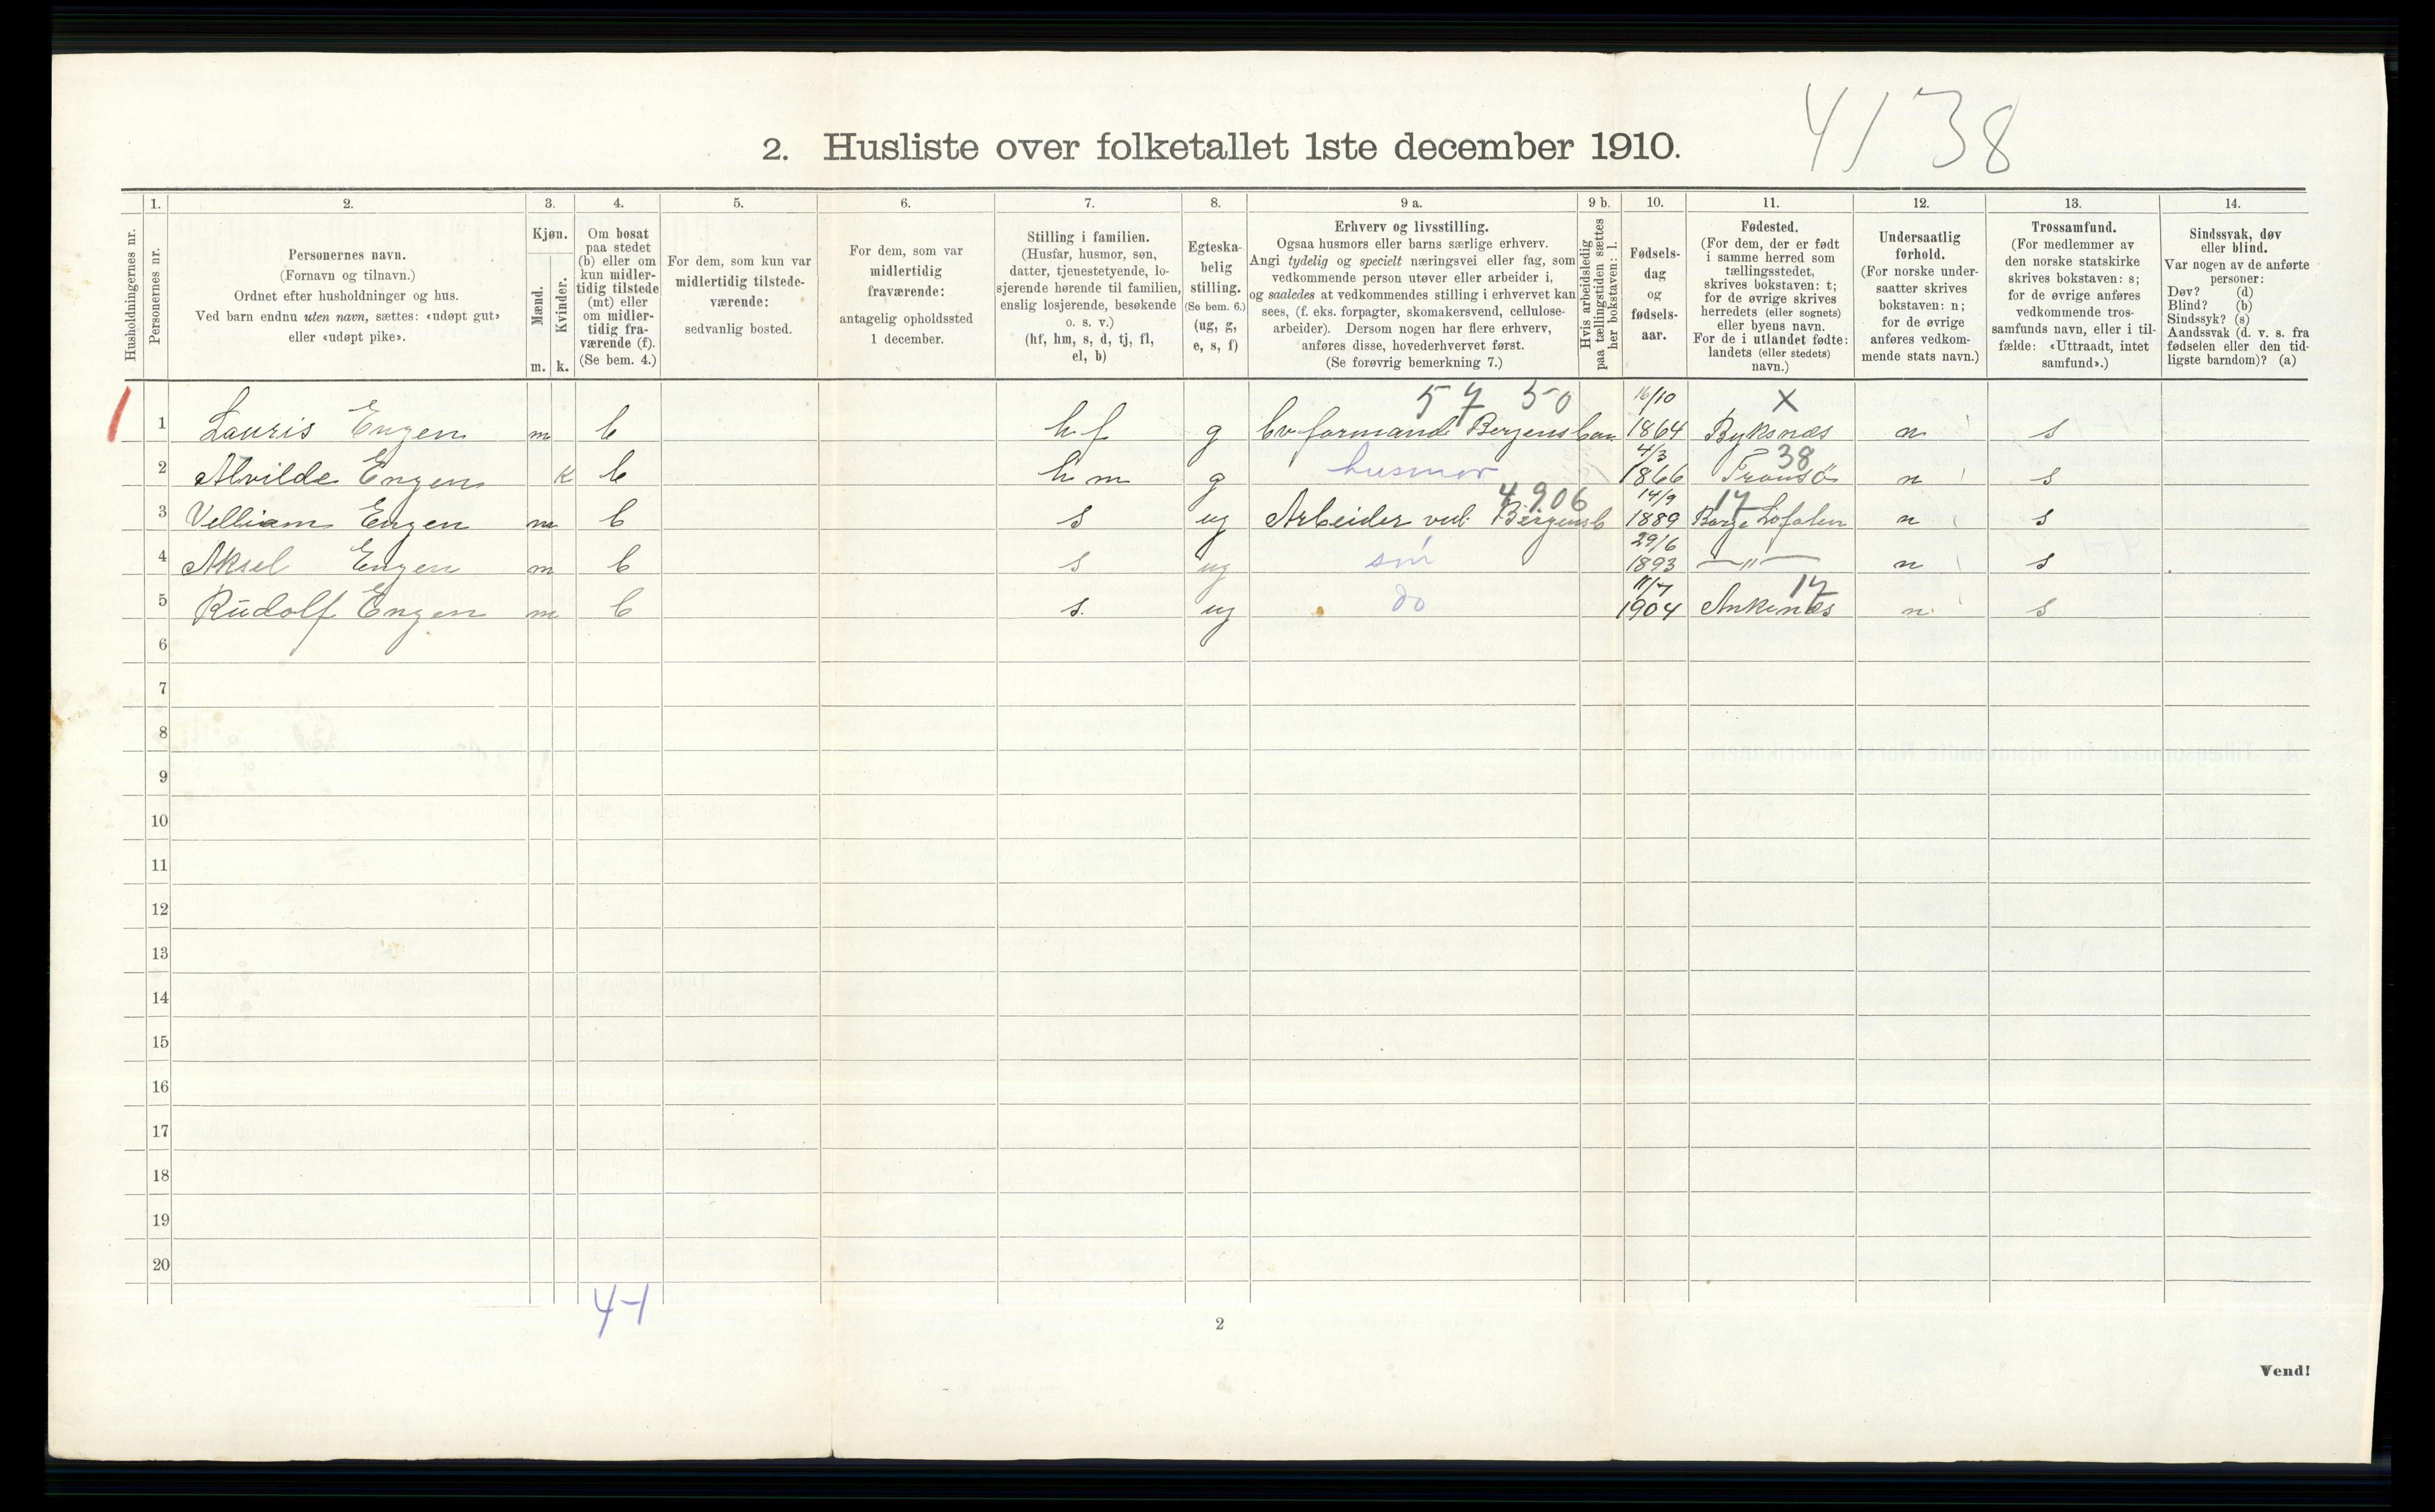 4/38
2. Husliste over folketallet 1ste december 1910.
Husholdningernes nr.
1.
Personernes nr.
2.
Personernes navn.
(Fornavn og tilnavn.)
Ordnet efter husholdninger og hus.
Ved barn endnu uten navn, sættes: «udøpt gut»
eller «udøpt pike».
3.
Kjøn.
Mænd.
Kvinder.
m. k.
4.
Om bosat
paa stedet
(b) eller om
kun midler-
tidig tilstede
(mt) eller
om midler-
tidig fra-
værende (f).
(Se bem. 4.)
5.
For dem, som kun var
midlertidig tilstede-
værende:
sedvanlig bosted.
6.
For dem, som var
midlertidig
fraværende:
antagelig opholdssted
1 december.
7.
Stilling i familien.
(Husfar, husmor, søn,
datter, tjenestetyende, lo-
sjerende hørende til familien,
enslig losjerende, besøkende
o. s. v.)
(hf, hm, s, d, tj, fl,
el, b)
8.
Egteska-
belig
stilling.
(Se bem. 6.)
(ug, g,
e, s, f)
9 a.
Erhverv og livsstilling.
Ogsaa husmors eller barns særlige erhverv.
Angi tydelig og specielt næringsvei eller fag, som
vedkommende person utøver eller arbeider i,
og saaledes at vedkommendes stilling i erhvervet kan
sees, (f. eks. forpagter, skomakersvend, cellulose-
arbeider). Dersom nogen har flere erhverv,
anføres disse, hovederhvervet først.
(Se forøvrig bemerkning 7.)
9 b.
Hvis arbeidsledig
paa tællingstiden sættes
her bokstaven: l.
10.
Fødsels-
dag
og
fødsels-
aar.
11.
Fødested.
(For dem, der er født
i samme herred som
tællingsstedet,
skrives bokstaven: t;
for de øvrige skrives
herredets (eller sognets)
eller byens navn.
For de i utlandet fødte:
landets (eller stedets)
navn.)
12.
Undersaatlig
forhold.
(For norske under-
saatter skrives
bokstaven: n;
for de øvrige
anføres vedkom-
mende stats navn.)
13.
Trossamfund.
(For medlemmer av
den norske statskirke
skrives bokstaven: s;
for de øvrige anføres
vedkommende tros-
samfunds navn, eller i til-
fælde: «Uttraadt, intet
samfund».)
14.
Sindssvak, døv
eller blind.
Var nogen av de anførte
personer:
Døv? (d)
Blind? (b)
Sindssyk? (s)
Aandssvak (d. v. s. fra
fødselen eller den tid-
ligste barndom)? (a)
57 50 16/10 X
1 Lauris Engen m b hf g bvformand Bergensban 1864 Byksnæs n s
4/3 38
2 Alvilde Engen k b hm g husmor 1866 Tromsö n s
4906 14/9 17
3 Velliam Engen m b s ug Arbeider ved Bergensb 1889 Borge Lofoten n s
29/6
4 Aksel Engen m b s ug søn 1893 —"— n s
11/7 17
5 Rudolf Engen m b s. ug do 1904 Ankenæs n s
6
7
8
9
10
11
12
13
14
15
16
17
18
19
20
4-1
2
Vend!